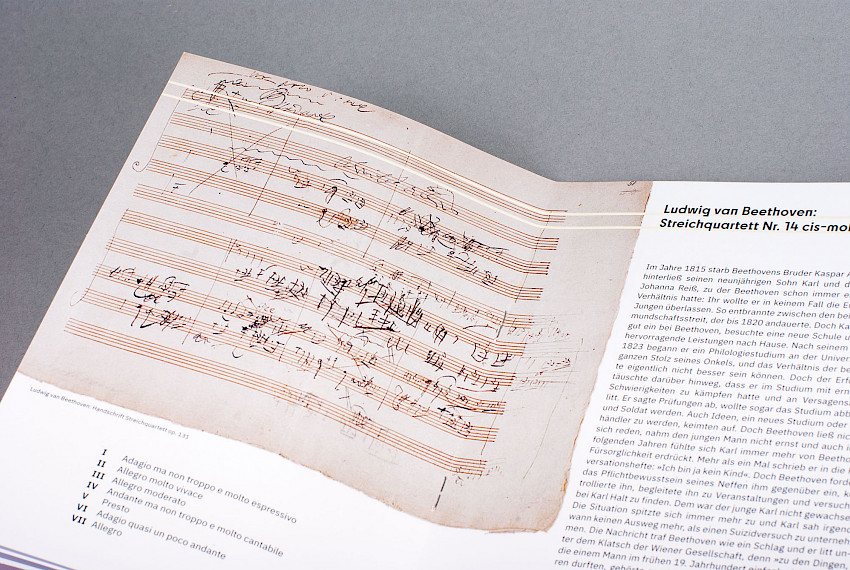 Ludwig van Beethoven; Handschrift Streichquartett op. 131
I Adagio ma non troppo e molto espressivo
II Allegro molto vivace
III Allegro moderato
IV Andante ma non troppo e molto cantabile
V Presto
VI Adagio quasi un poco andante
VII Allegro
Ludwig van Beethoven:
Streichquartett Nr. 14 cis-mol
Im Jahre 1815 starb Beethovens Bruder Kaspar A
hinterließ seinen neunjährigen Sohn Karl und d
Johanna Reiß, zu der Beethoven schon immer e
Verhältnis hatte; Ihr wollte er in keinem Fall die E
Jungen überlassen. So entbrannte zwischen den bei
mundschaftsstreit, der bis 1820 andauerte. Doch Ka
gut ein bei Beethoven, besuchte eine neue Schule u
hervorragende Leistungen nach Hause. Nach seinem
1823 begann er ein Philologiestudium an der Univer
ganzen Stolz seines Onkels, und das Verhältnis der be
te eigentlich nicht besser sein können. Doch der Erf
täuschte darüber hinweg, dass er im Studium mit ern
Schwierigkeiten zu kämpfen hatte und an Versagensä
litt. Er sagte Prüfungen ab, wollte sogar das Studium abb
und Soldat werden. Auch Ideen, ein neues Studium oder
händler zu werden, keimten auf. Doch Beethoven ließ nic
sich reden, nahm den jungen Mann nicht ernst und auch i
folgenden Jahren fühlte sich Karl immer mehr von Beetho
Fürsorglichkeit erdrückt. Mehr als ein Mal schrieb er in die K
versationshefte: »Ich bin ja kein Kind«. Doch Beethoven ford
das Pflichtbewusstsein seines Neffen ihm gegenüber ein, k
trollierte ihn, begleitete ihn zu Veranstaltungen und versuch
bei Karl Halt zu finden. Dem war der junge Karl nicht gewachse
Die Situation spitzte sich immer mehr zu und Karl sah irgen
wann keinen Ausweg mehr, als einen Suizidversuch zu unterneh
men. Die Nachricht traf Beethoven wie ein Schlag und er litt un-
ter dem Klatsch der Wiener Gesellschaft, denn »zu den Dingen,
die einem Mann im frühen 19. Jahrhundert
ren durften,